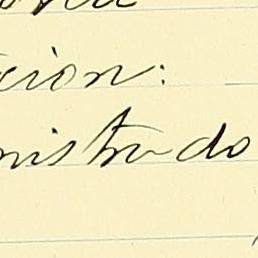 cion:
nistrado